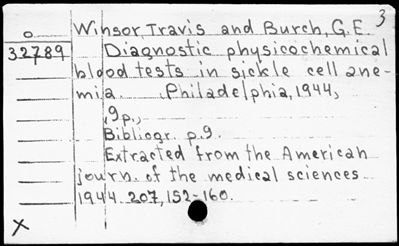 3
o Winsor, Travis and Burch, G.E.
32789 Diagnostic physicochemical
blood tests in sickle cell ane-
mia. Philadelphia, 1944,
9p.,
Bibliogr. p.9.
Extracted from the American
journ. of the medical sciences
1944. 207, 152-160.
X